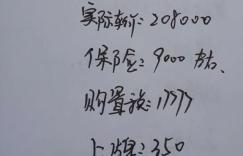 实际车价：208000
保险：9000左右、
购置税：17777
上牌：350